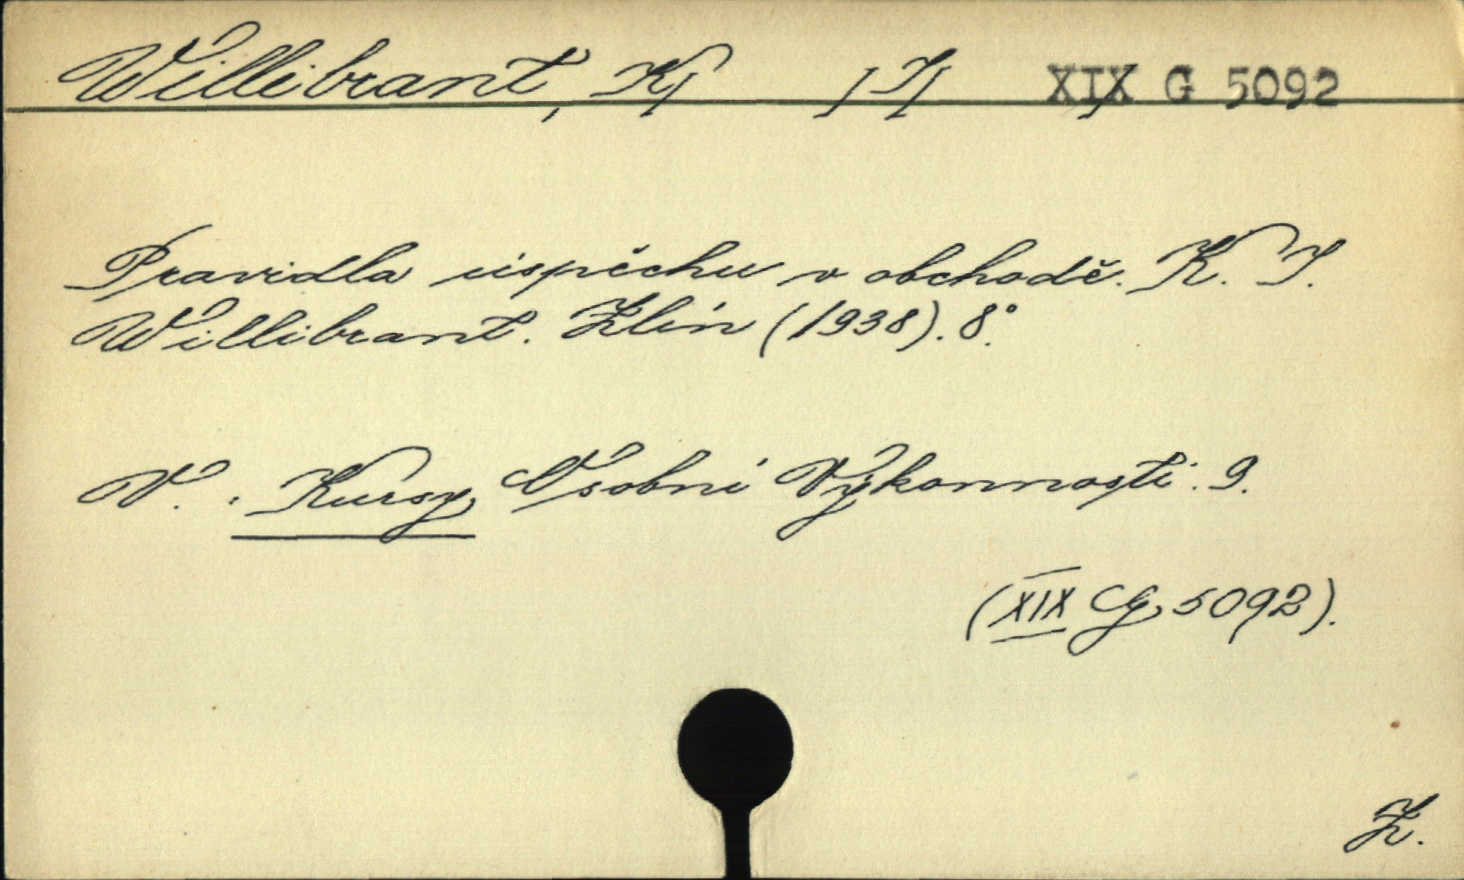 Willibrant, K/ /J/ XIX G 5092
Pravidla úspěchu v obchodě. K. J.
Willibrant. Zlín (1938). 8°.
V: Kursy Osobní Výkonnosti. 9.
(XIX G 5092).
Z.